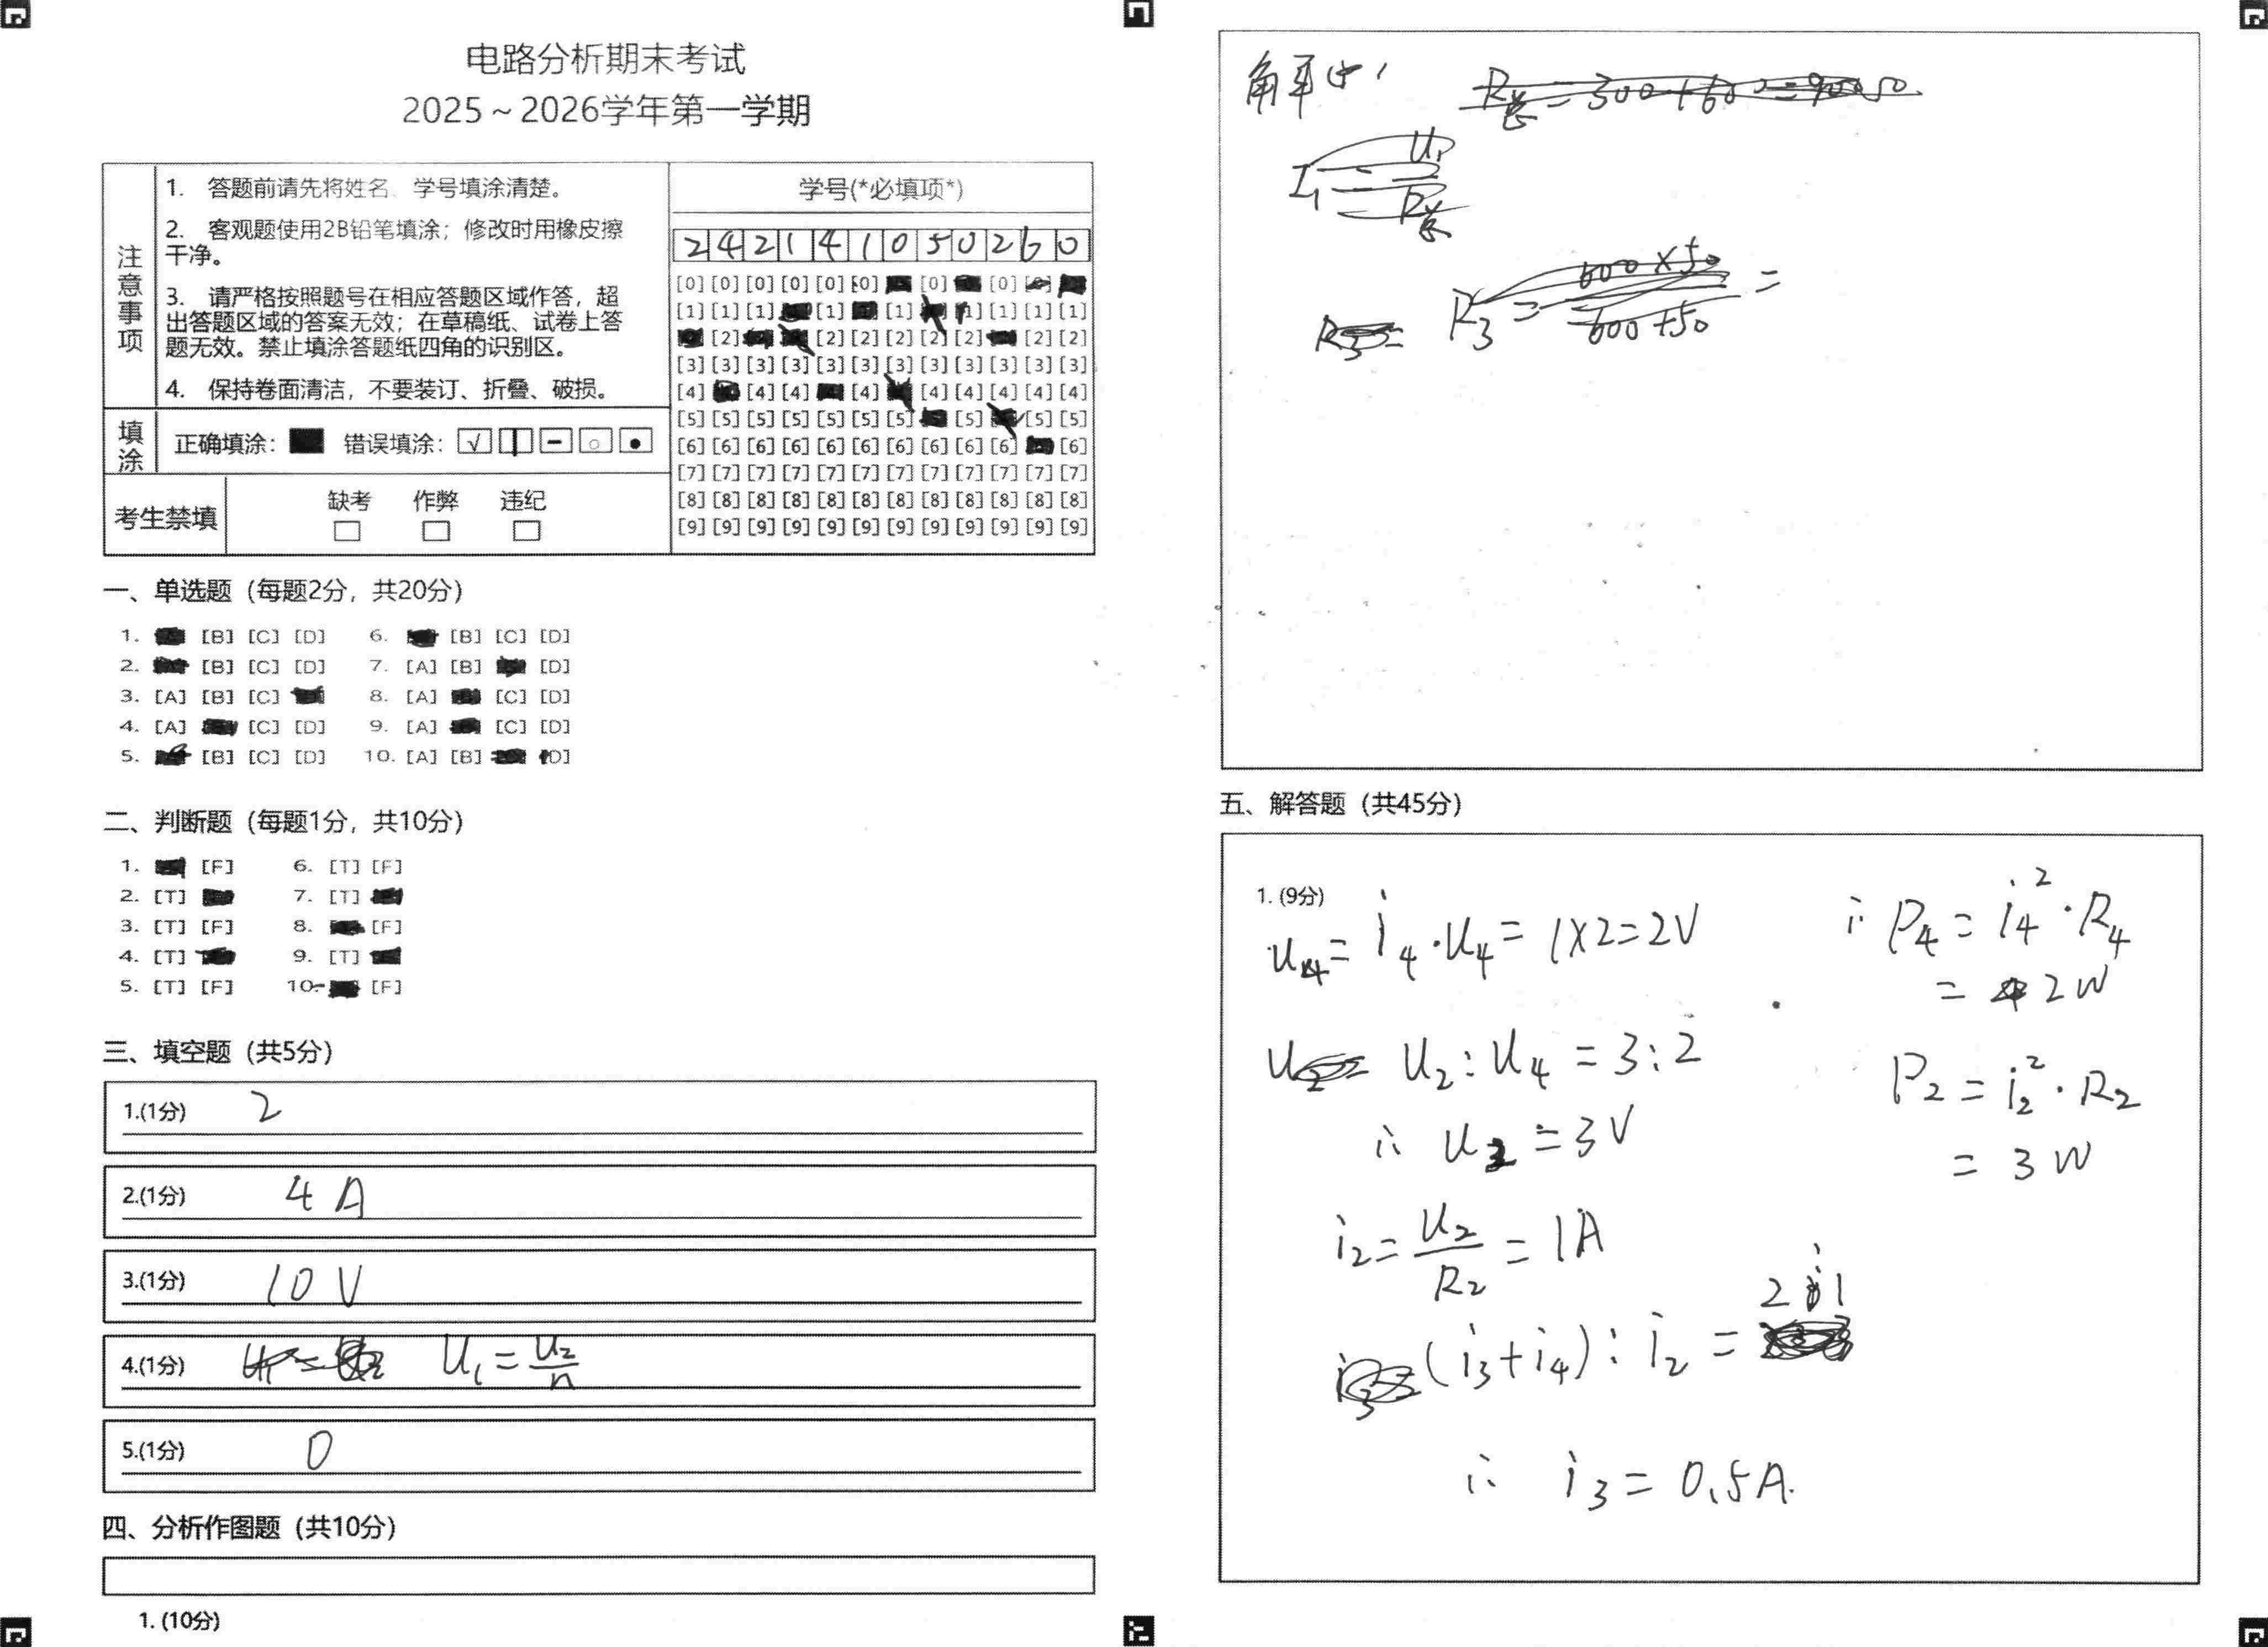 电路分析期末考试
2025～2026学年第一学期
注意事项
1. 答题前请先将姓名、学号填涂清楚。
2. 客观题使用2B铅笔填涂；修改时用橡皮擦
干净。
3. 请严格按照题号在相应答题区域作答，超
出答题区域的答案无效；在草稿纸、试卷上答
题无效。禁止填涂答题纸四角的识别区。
4. 保持卷面清洁，不要装订、折叠、破损。
填涂 正确填涂： 错误填涂：
考生禁填 缺考 作弊 违纪
学号(*必填项*)
2 4 2 1 4 1 0 5 0 2 6 0
[0] [0] [0] [0] [0] [0] [0] [0]
[1] [1] [1] [1] [1] [1] [1] [1]
[2] [2] [2] [2] [2] [2] [2] [2]
[3] [3] [3] [3] [3] [3] [3] [3] [3] [3] [3] [3]
[4] [4] [4] [4] [4] [4] [4] [4] [4]
[5] [5] [5] [5] [5] [5] [5] [5] [5] [5]
[6] [6] [6] [6] [6] [6] [6] [6] [6] [6] [6]
[7] [7] [7] [7] [7] [7] [7] [7] [7] [7] [7] [7]
[8] [8] [8] [8] [8] [8] [8] [8] [8] [8] [8] [8]
[9] [9] [9] [9] [9] [9] [9] [9] [9] [9] [9] [9]
一、单选题（每题2分，共20分）
1. [B] [C] [D] 6. [B] [C] [D]
2. [B] [C] [D] 7. [A] [B] [D]
3. [A] [B] [C] 8. [A] [C] [D]
4. [A] [C] [D] 9. [A] [C] [D]
5. [B] [C] [D] 10. [A] [B] [D]
二、判断题（每题1分，共10分）
1. [F] 6. [T] [F]
2. [T] 7. [T]
3. [T] [F] 8. [F]
4. [T] 9. [T]
5. [T] [F] 10. [F]
三、填空题（共5分）
1.(1分) 2
2.(1分) 4 A
3.(1分) 10 V
4.(1分) U₁ = U₂/n
5.(1分) 0
四、分析作图题（共10分）
1. (10分)
R总 = 300 + 600 = 900
I₁ = U₁/R总
R₃ = 600×50/600+50 =
五、解答题（共45分）
1. (9分)
u₄ = i₄·u₄ = 1×2=2V
u₂ : u₄ = 3:2
∴ u₂ = 3V
i₂ = u₂/R₂ = 1A
(i₃+i₄) : i₂ =
∴ i₃ = 0.5A.
∴ P₄ = i₄²·R₄
= 2W
P₂ = i₂²·R₂
= 3W